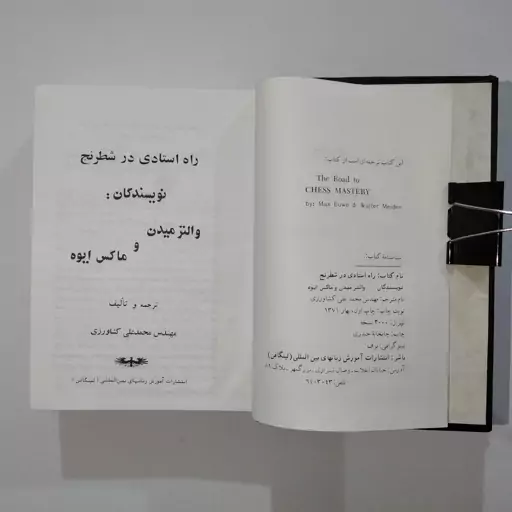 این کتاب ترجمه‌ای است از کتاب:
The Road to
CHESS MASTERY
by: Max Euwe & Walter Meiden
شناسنامه کتاب:
نام کتاب: راه استادی در شطرنج
نویسندگان والتر میدن و ماکس ایوه
نام مترجم: مهندس محمد تقی کشاورزی
نوبت چاپ: چاپ اول، بهار ۱۳۷۱
تیراژ: ۳۰۰۰ نسخه
چاپ: چاپخانه حیدری
ناشر: انتشارات آموزش زبانهای بین المللی (لینگافن)
آدرس: خیابان انقلاب،
تلفن: ۶۴۰۳۰۴۳
راه استادی در شطرنج
نویسندگان :
والتر میدن
و
ماکس ایوه
ترجمه و تألیف
مهندس محمدتقی کشاورزی
انتشارات آموزش زبانهای بین‌المللی (لینگافن)